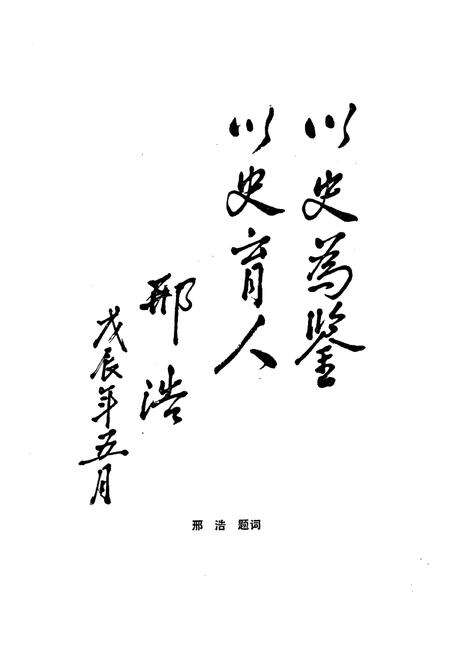 以史为鉴
以史育人
邢浩
戊辰年五月
邢浩 题词